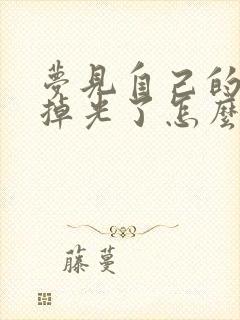 夢見自己的
掉光了怎麼
藤蔓